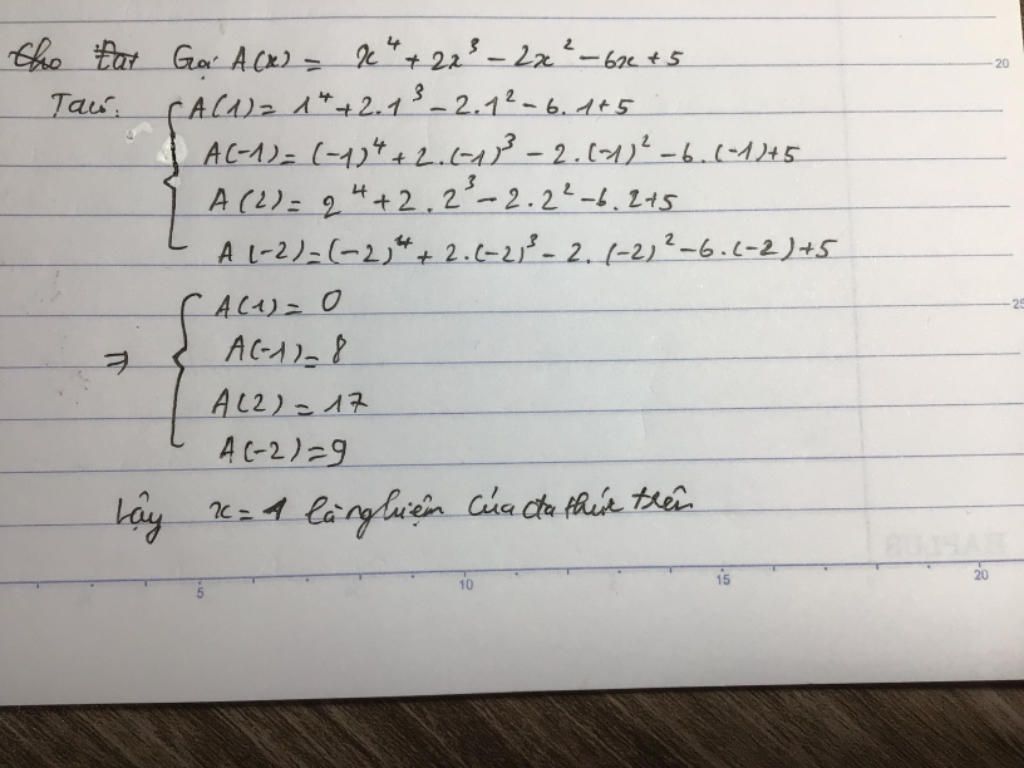 Cho Gọi A(x) = x⁴ + 2x³ - 2x² - 6x + 5
Ta có: A(1) = 1⁴ + 2.1³ - 2.1² - 6.1 + 5
A(-1) = (-1)⁴ + 2.(-1)³ - 2.(-1)² - 6.(-1) + 5
A(2) = 2⁴ + 2.2³ - 2.2² - 6.2 + 5
A(-2) = (-2)⁴ + 2.(-2)³ - 2.(-2)² - 6.(-2) + 5
A(1) = 0
⇒ A(-1) = 8
A(2) = 17
A(-2) = 9
Vậy x = 1 là nghiệm của đa thức trên
5 10 15 20
20
25